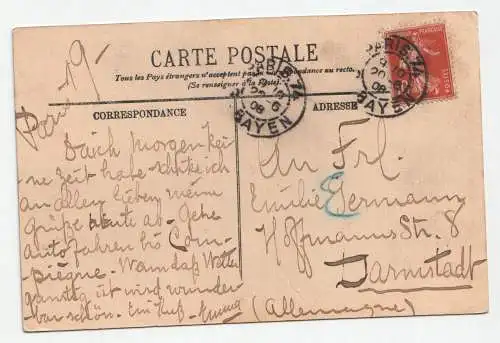 CARTE POSTALE
Tous les Pays étrangers n'acceptent pas la Correspondance au recto.
(Se renseigner à la Poste).
CORRESPONDANCE
ADRESSE
PARIS 74
20 6
08
BAYEN
PARIS 74
20 6
08
BAYEN
Paris 19
Da ich morgen kei-
ne Zeit habe schicke ich
an allen lieben meine
Grüße heute ab. Gehe
Auto fahren bis Com-
piègne. Wenn das Wetter
günstig ist wird wunder
bar schön. Ein Kuß. Emma
An Frl.
Emilie Germann
Hoffmanns Str. 8
Darmstadt
(Allemagne)